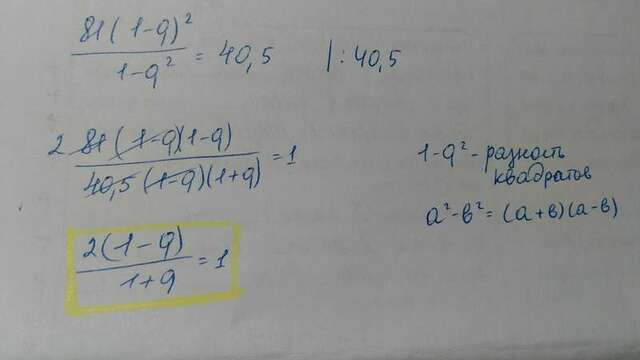 81(1-q)²
1-q² = 40,5 |:40,5
2 81(1-q)(1-q)
40,5(1-q)(1+q) = 1
1-q² - разность
квадратов
a²-в² = (a+в)(a-в)
2(1-q)
1+q = 1